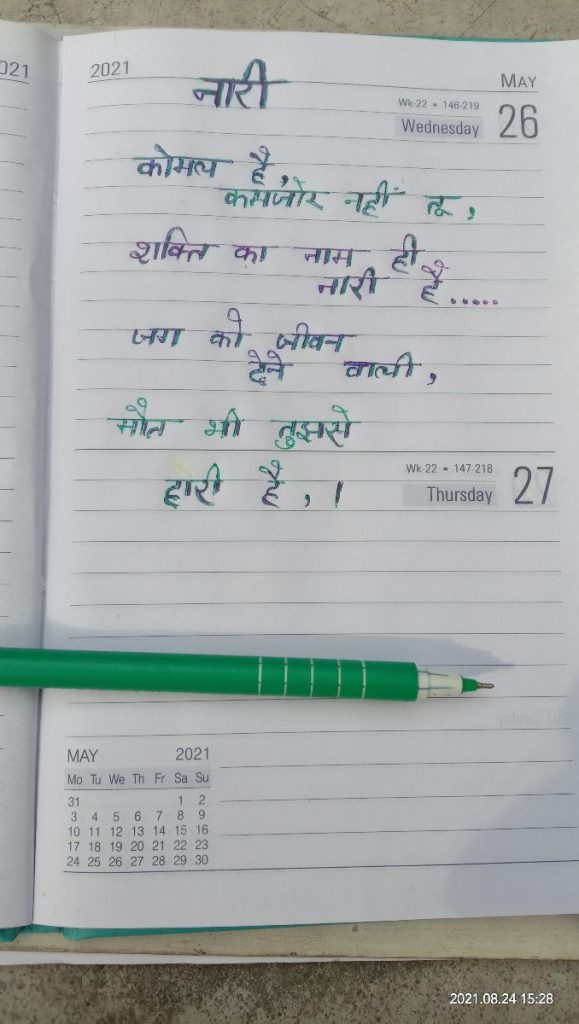 021
2021
MAY
नारी
Wk-22 • 146-219
Wednesday 26
कोमल है,
कमजोर नहीं तू,
शक्ति का नाम ही
नारी है.....
जग को जीवन
देने वाली,
मौत भी तुझसे
हारी है, ।
Wk-22 • 147-218
Thursday 27
30 Sunday
MAY 2021
Mo Tu We Th Fr Sa Su
31 1 2
3 4 5 6 7 8 9
10 11 12 13 14 15 16
17 18 19 20 21 22 23
24 25 26 27 28 29 30
2021.08.24 15:28